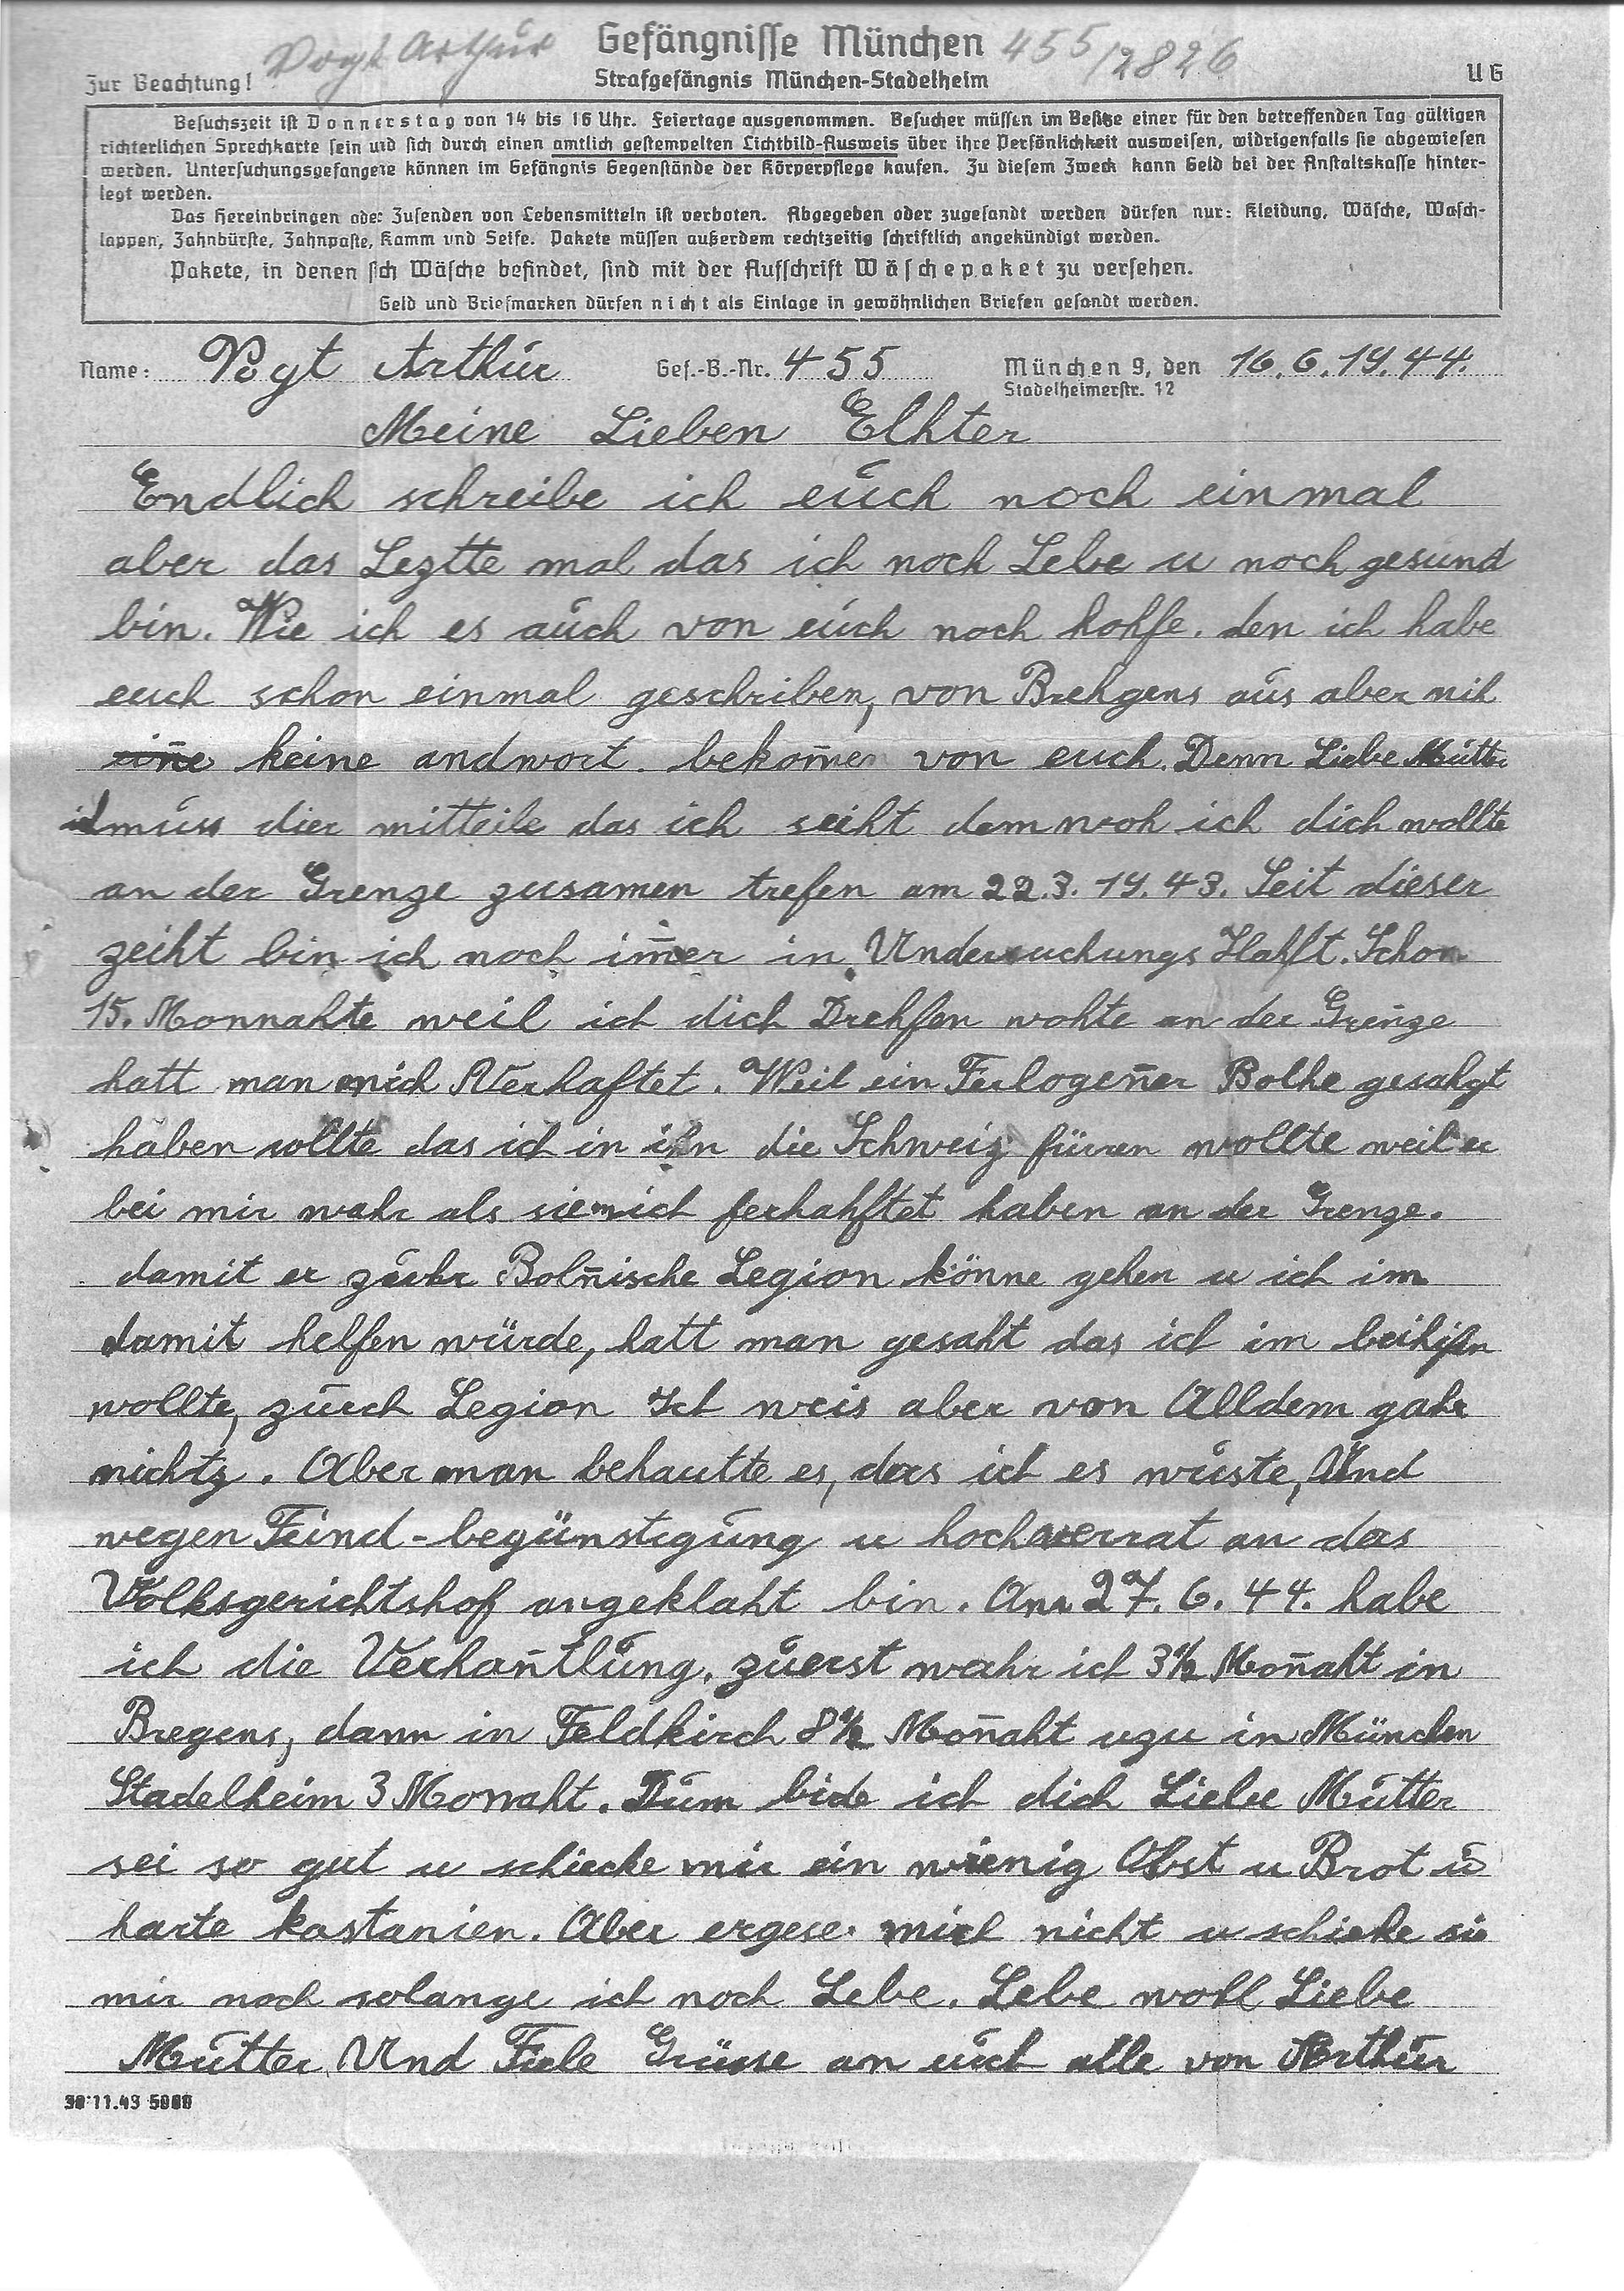 Vogt Arthur
Gefängnisse München 455/2826
Zur Beachtung!
Strafgefängnis München-Stadelheim
UG
Besuchszeit ist Donnerstag von 14 bis 16 Uhr. Feiertage ausgenommen. Besucher müssen im Besitze einer für den betreffenden Tag gültigen
richterlichen Sprechkarte sein und sich durch einen amtlich gestempelten Lichtbild-Ausweis über ihre Persönlichkeit ausweisen, widrigenfalls sie abgewiesen
werden. Untersuchungsgefangene können im Gefängnis Gegenstände der Körperpflege kaufen. Zu diesem Zweck kann Geld bei der Anstaltskasse hinter-
legt werden.
Das Hereinbringen oder Zusenden von Lebensmitteln ist verboten. Abgegeben oder zugesandt werden dürfen nur: Kleidung, Wäsche, Wasch-
lappen, Zahnbürste, Zahnpaste, Kamm und Seife. Pakete müssen außerdem rechtzeitig schriftlich angekündigt werden.
Pakete, in denen sich Wäsche befindet, sind mit der Aufschrift Wäschepaket zu versehen.
Geld und Briefmarken dürfen nicht als Einlage in gewöhnlichen Briefen gesandt werden.
Name: Vogt Arthur Gef.-B.-Nr. 455 München 9, den 16.6.1944.
Stadelheimerstr. 12
Meine Lieben Elhter
Endlich schreibe ich euch noch einmal
aber das Leztte mal das ich noch Lebe u noch gesund
bin. Wie ich es auch von euch noch hohfe. den ich habe
euch schon einmal geschriben, von Brehgens aus aber nih
eine keine andwort bekom̄en von euch. Denn Liebe Mutter
ich muss dier mitteile das ich seiht dem woh ich dich wollte
an der Grenze zusamen trefen am 22.3.1943. Seit dieser
zeiht bin ich noch im̄er in Undersuchungs Hahft. Schon
15. Monnahte weil ich dich Drehfen wohte an der Grenze
hatt man mich Verhaftet. Weil ein Ferlogen̄er Bolhe gesahgt
haben sollte das ich in ihn die Schweiz füren wollte weil er
bei mir wahr als sie mich ferhahftet haben an der Grenze.
damit er zuhr Boln̄ische Legion könne gehen u ich im
damit helfen würde, hatt man gesaht das ich im
wollte, zurch Legion Ich weis aber von Alldem gahr
nichtz. Aber man behautte es, das ich es wüste, Und
wegen Feind-begünstigung u hochverrat an das
Volksgerichtshof angeklaht bin. Am 27.6.44. habe
ich die Verhan̄tlung. zuerst wahr ich 3½ Mon̄aht in
Bregens, dann in Feldkirch 8½ Mon̄aht uzu in München
Stadelheim 3 Monnaht. Dum bide ich dich Liebe Mutter
sei so gut u schiecke mir ein wienig Obst u Brot u
harte kastanien. Aber ergese mich nicht u schieke sie
mir noch solange ich noch Lebe. Lebe wohl Liebe
Mutter Und Fiele Grüsse an euch alle von Arthur
30.11.43 5000